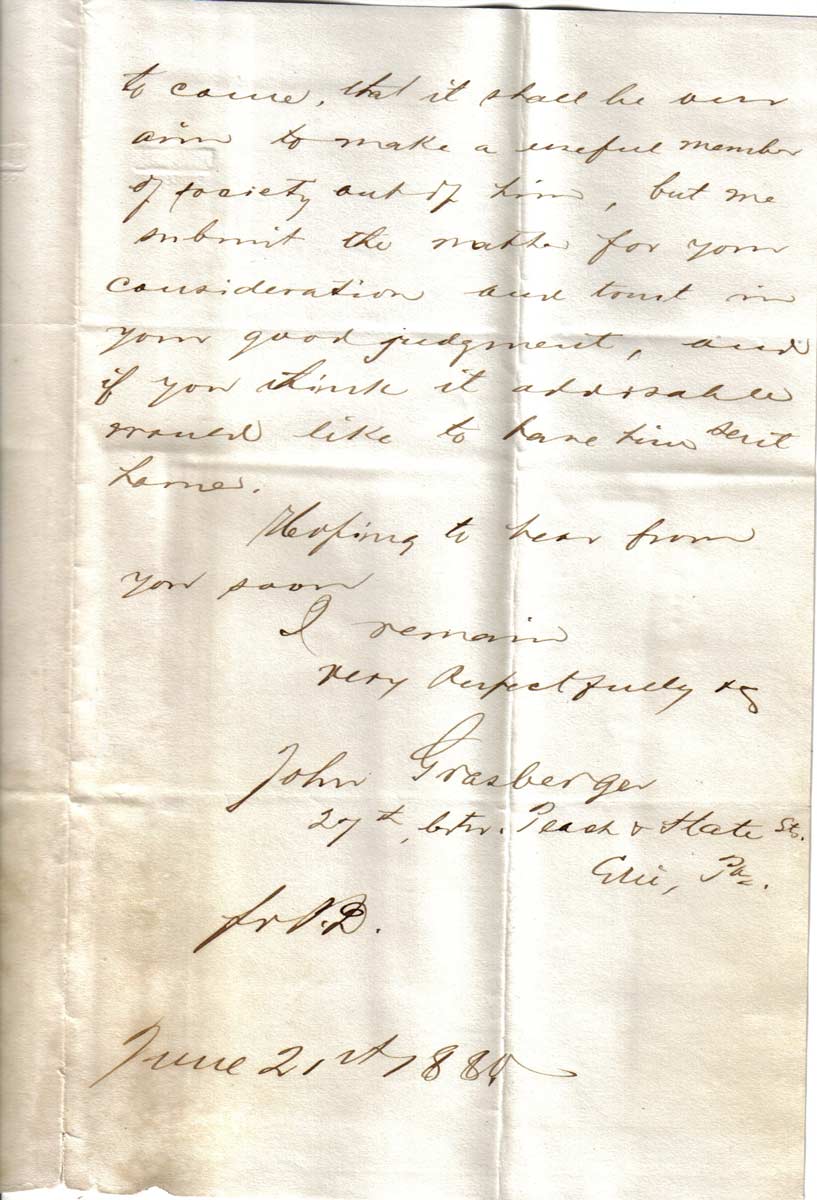 to come, that it shall be our
aim to make a useful member
of society out of him, but we
submit the matter for your
consideration and trust in
your good judgment, and
if you think it advisable
would like to have him sent
home.
Hoping to hear from
you soon
I remain
very Respectfully &c
John Grasberger
27th, btw. Peach & State Sts.
Erie, Pa.
June 21st, 1880